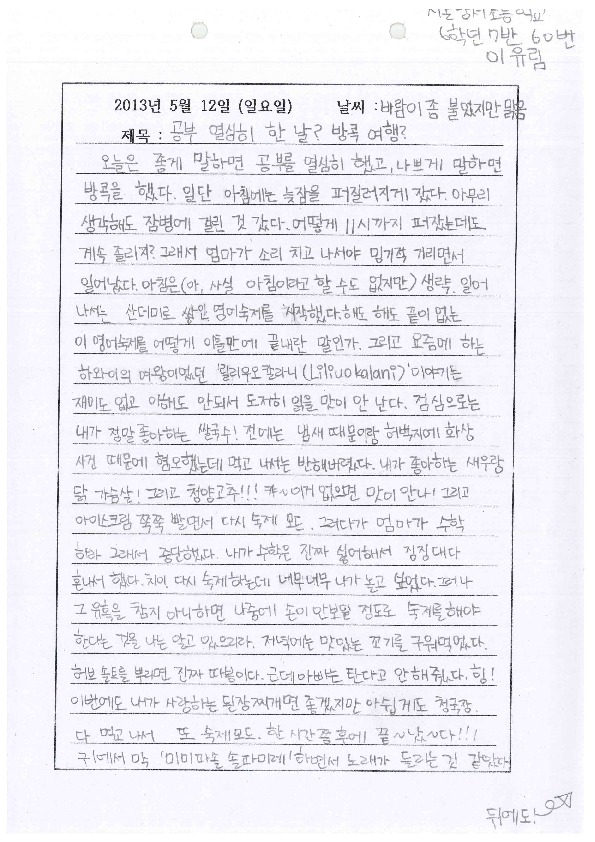 6학년 7반 60번
이유림
2013년 5월 12일 (일요일) 날씨 : 바람이 좀 불었지만 맑음
제목 : 공부 열심히 한 날? 방콕 여행?
오늘은 좋게 말하면 공부를 열심히 했고, 나쁘게 말하면
방콕을 했다. 일단 아침에는 늦잠을 퍼질러지게 잤다. 아무리
생각해도 잠병에 걸린 것 같다. 어떻게 11시까지 퍼잤는데도
계속 졸리지? 그래서 엄마가 소리 치고 나서야 밍기적 거리면서
일어났다. 아침은(아, 사실 아침이라고 할 수도 없지만) 생략. 일어
나서는 산데미로 쌓인 영어숙제를 시작했다. 해도 해도 끝이 없는
이 영어숙제를 어떻게 이틀만에 끝내란 말인가. 그리고 요즘에 하는
하와이의 여왕이었던 '릴리우오칼라니(Liliuokalani)' 이야기는
재미도 없고 이해도 안되서 도저히 읽을 맛이 안 난다. 점심으로는
내가 정말 좋아하는 쌀국수! 전에는 냄새 때문이랑 허벅지에 화상
사건 때문에 혐오했는데 먹고 나서는 반해버렸다. 내가 좋아하는 새우랑
닭 가슴살! 그리고 청양고추!!! 캬~이거 없으면 맛이 안나! 그리고
아이스크림 쭉쭉 빨면서 다시 숙제 모드. 그러다가 엄마가 수학
하라 그래서 중단했다. 내가 수학은 진짜 싫어해서 징징대다
혼나서 했다. 치이, 다시 숙제하는데 너무너무 나가 놀고 싶었다. 그러나
그 유혹을 참지 아니하면 나중에 손이 안보일 정도로 숙제를 해야
한다는 것을 나는 알고 있으리라. 저녁에는 맛있는 꼬기를 구워먹었다.
허브 솔트를 뿌리면 진짜 따봉이다. 근데 아빠는 탄다고 안해줬다. 힝!
이번에도 내가 사랑하는 된장찌개면 좋겠지만 아쉽게도 청국장.
다 먹고 나서 또 숙제모드. 한 시간쯤 후에 끝~났~다!!!
귀에서 막 '미미파솔 솔파미레' 하면서 노래가 들리는 것 같았다
뒤에도!